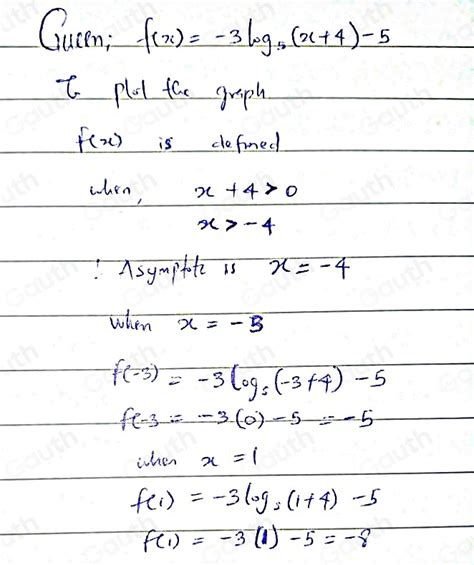 Given; f(x) = -3log₅(x+4) - 5
To plot the graph
f(x) is defined
when, x + 4 > 0
x > -4
: Asymptote is x = -4
when x = -3
f(-3) = -3log₅(-3+4) - 5
f(-3 = -3(0) - 5 = -5
when x = 1
f(1) = -3log₅(1+4) - 5
f(1) = -3(1) - 5 = -8